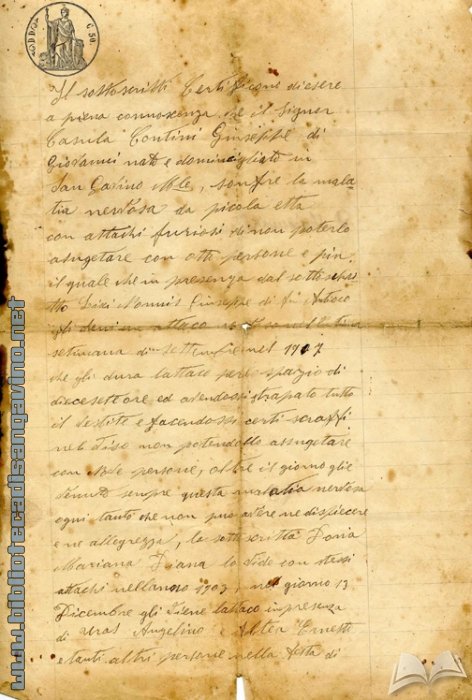 C. 50
Il sottoscritti Certificano di esere
a piena connoscenza che il Signor
Casula Contini Giuseppe di
Giovanni nato e domincigliato in
San Gavino Mle, sonfre la mala
tia nervosa da picola etta
con attachi furiosi di non poterlo
asugetare con otti persone e più,
il quale che in presenza dal sottoschri
tto Nonnis Giuseppe di fu
attaco
settimana di settenbre nel 1907
che gli dura lattaco per spazio di
diecesettore ed avendosi strapato tutto
il vestito e facendosi certi scraffi
nel viso non potendollo assugetare
con Molte persone, oltre il giorno glie
venuto senpre questa malatia nervosa
ogni tanto che non può avere ne dispiecere
e ne allegrezza, la sottoscritta Dona
Mariana Diana lo vido con stessi
attachi nellanno 1903, nel giorno 13
Dicembre gli viene lattaco in presenza
di Uras Angelino e Altea Ernesto
e tanti altri persone nella festa di
www.bibliotecadisangavino.net